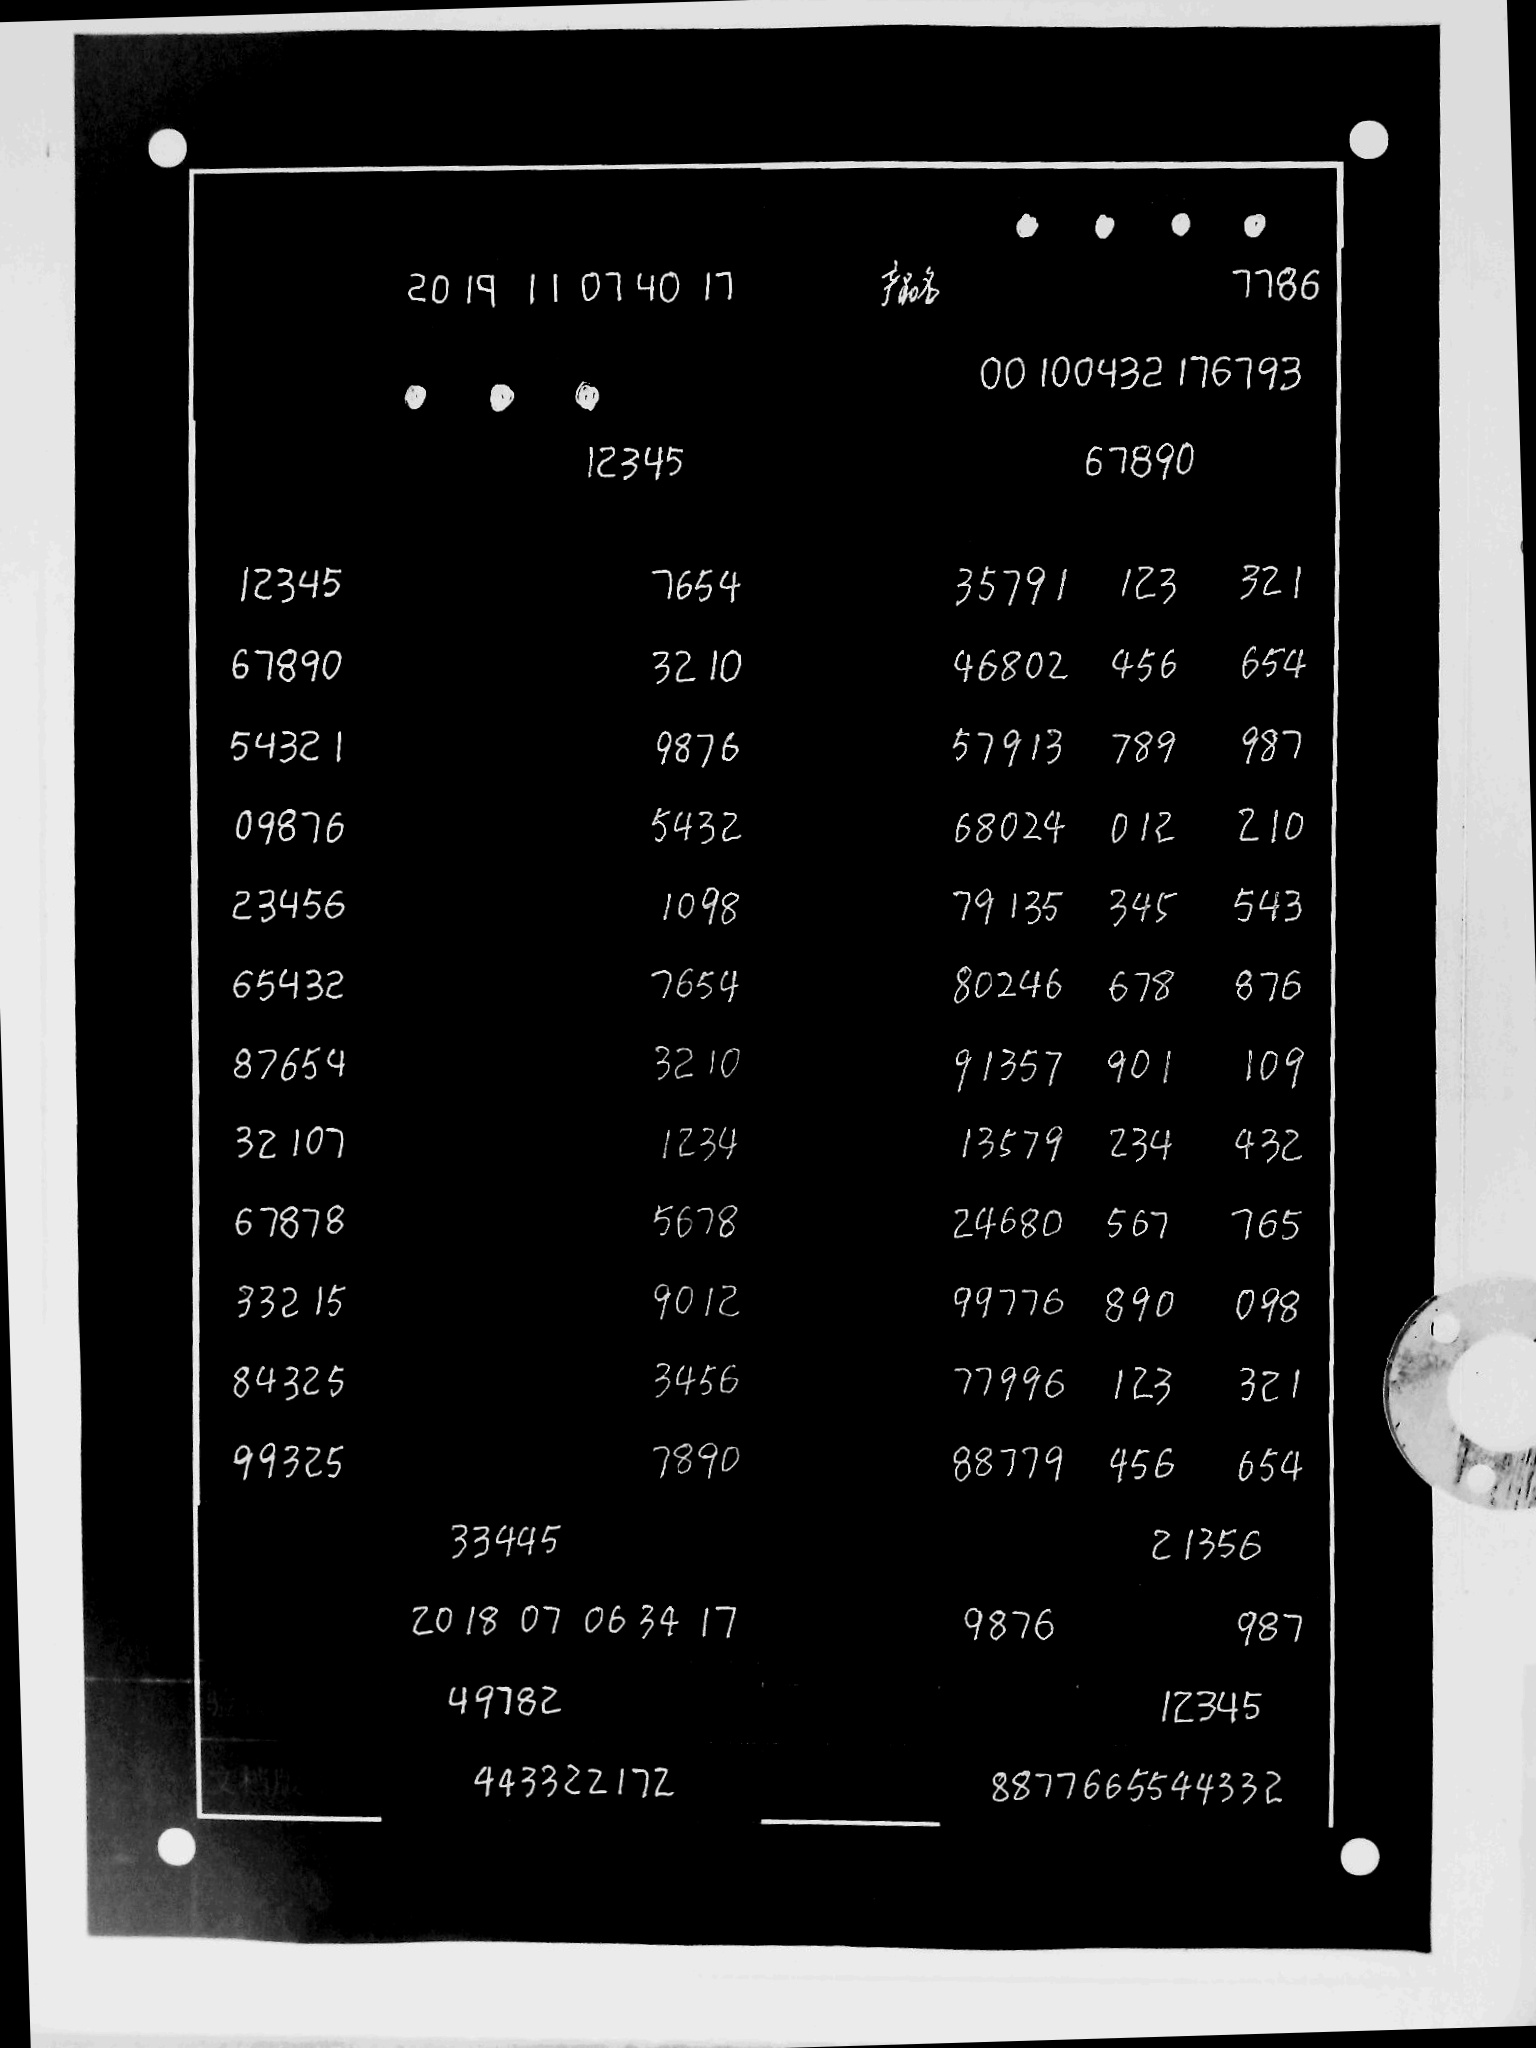 2019 11 07 40 17 产品名 7786
00100432176793
12345 67890
12345 7654 35791 123 321
67890 3210 46802 456 654
54321 9876 57913 789 987
09876 5432 68024 012 210
23456 1098 79135 345 543
65432 7654 80246 678 876
87654 3210 91357 901 109
32107 1234 13579 234 432
67878 5678 24680 567 765
33215 9012 99776 890 098
84325 3456 77996 123 321
99325 7890 88779 456 654
33445 21356
2018 07 06 34 17 9876 987
49782 12345
443322172 8877665544332